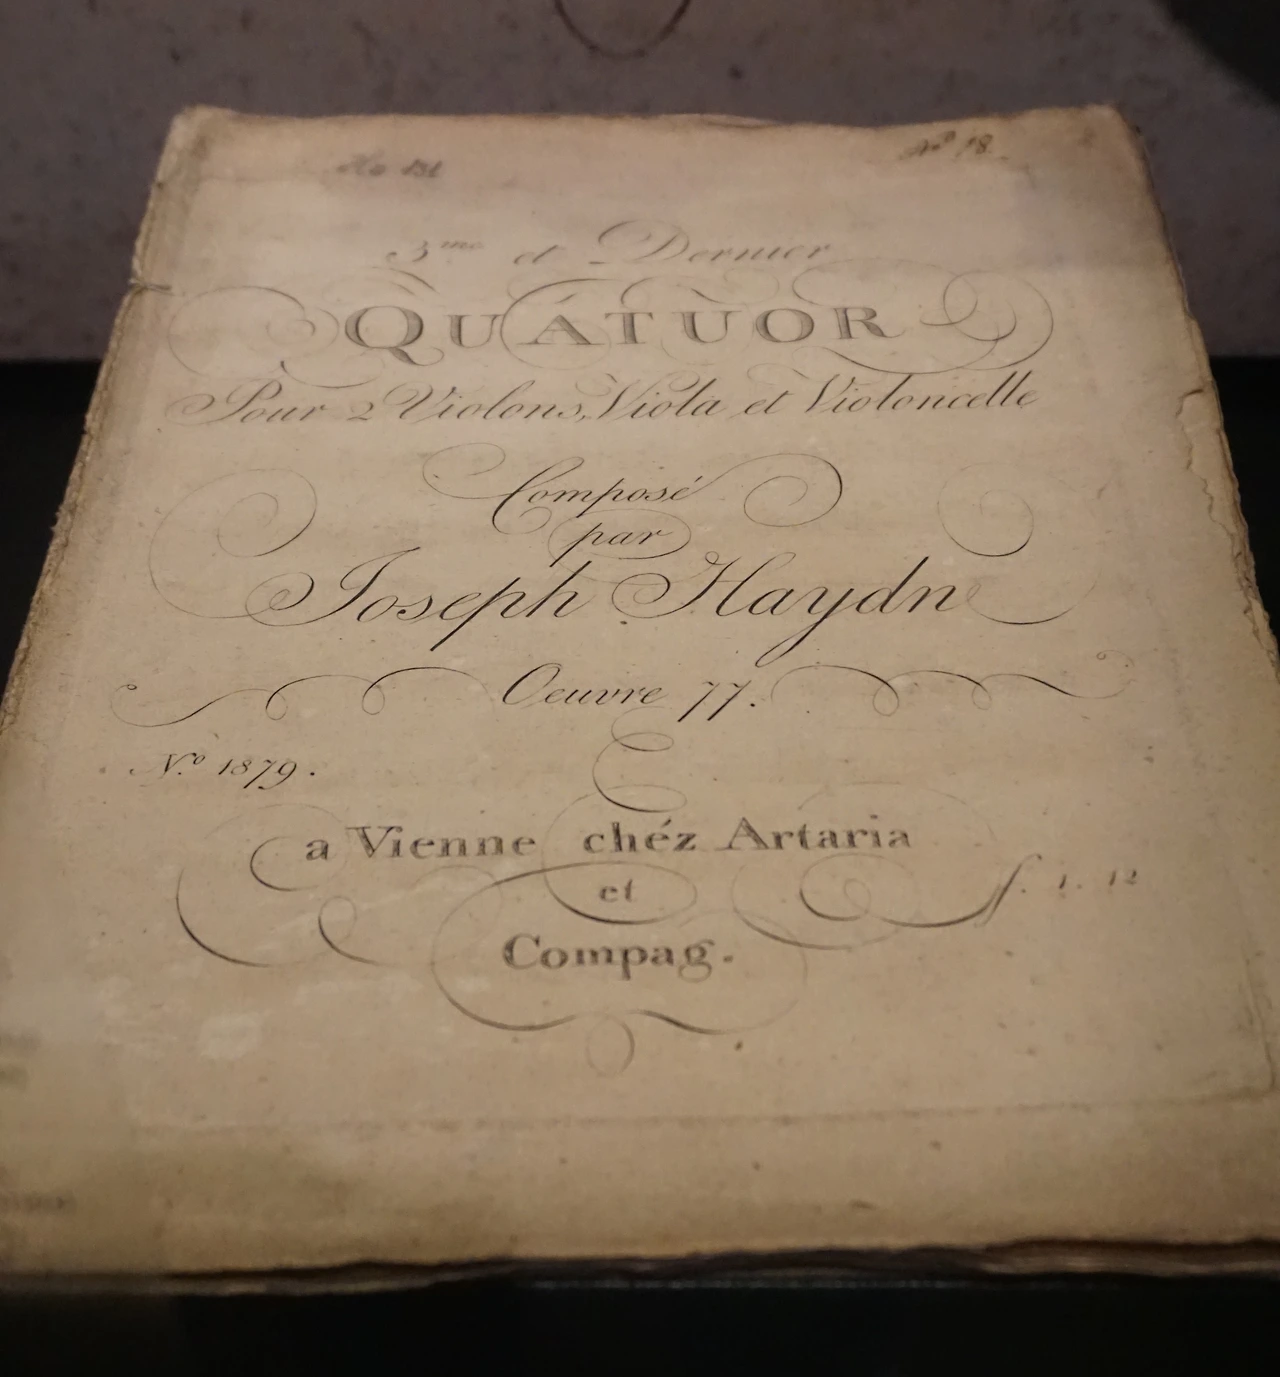 No 18.
3me et Dernier
QUATUOR
Pour 2 Violons, Viola et Violoncelle
Composé
par
Joseph Haydn
Oeuvre 77.
No. 1879.
a Vienne chéz Artaria
et
f. 1. 12
Compag.